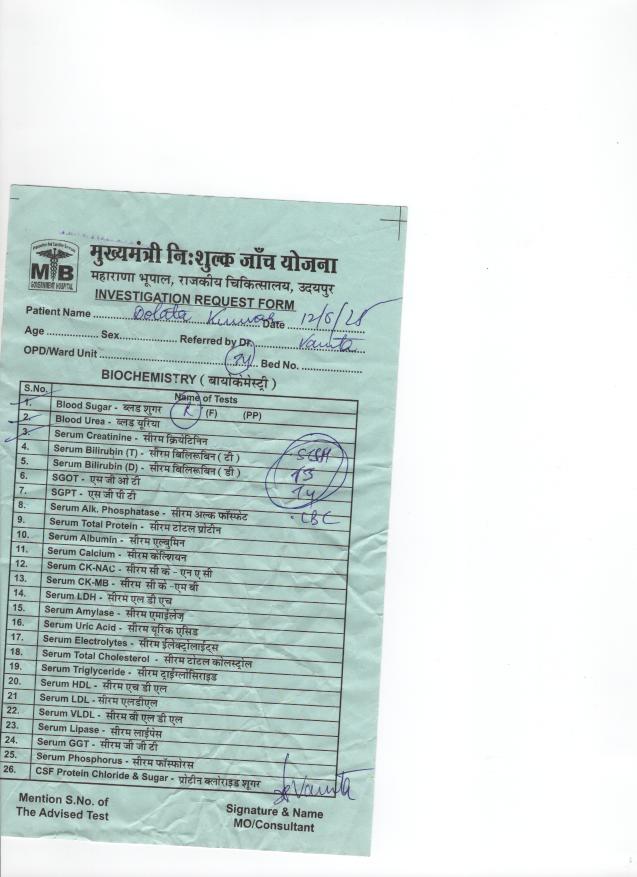 मुख्यमंत्री निःशुल्क जाँच योजना
महाराणा भूपाल, राजकीय चिकित्सालय, उदयपुर
MB
GOVERNMENT HOSPITAL
INVESTIGATION REQUEST FORM
Patient Name Date 12/6/25
Age Sex Referred by Dr. Vanita
OPD/Ward Unit Bed No.
BIOCHEMISTRY ( बायोकेमेस्ट्री )
S.No. Name of Tests
1. Blood Sugar - ब्लड शुगर R (F) (PP)
2. Blood Urea - ब्लड यूरिया
3. Serum Creatinine - सीरम क्रियेटिनिन
4. Serum Bilirubin (T) - सीरम बिलिरूबिन ( टी )
5. Serum Bilirubin (D) - सीरम बिलिरूबिन ( डी )
6. SGOT - एस जी ओ टी
7. SGPT - एस जी पी टी
8. Serum Alk. Phosphatase - सीरम अल्क फॉस्फेट
CBC
9. Serum Total Protein - सीरम टोटल प्रोटीन
10. Serum Albumin - सीरम एल्बुमिन
11. Serum Calcium - सीरम केल्शियन
12. Serum CK-NAC - सीरम सी के - एन ए सी
13. Serum CK-MB - सीरम सी के -एम बी
14. Serum LDH - सीरम एल डी एच
15. Serum Amylase - सीरम एमाईलेज
16. Serum Uric Acid - सीरम यूरिक एसिड
17. Serum Electrolytes - सीरम ईलेक्ट्रोलाईट्स
18. Serum Total Cholesterol - सीरम टोटल कोलस्ट्रोल
19. Serum Triglyceride - सीरम ट्राईग्लोसिराइड
20. Serum HDL - सीरम एच डी एल
21 Serum LDL - सीरम एलडीएल
22. Serum VLDL - सीरम वी एल डी एल
23. Serum Lipase - सीरम लाईपेस
24. Serum GGT - सीरम जी जी टी
25. Serum Phosphorus - सीरम फॉस्फोरस
26. CSF Protein Chloride & Sugar - प्रोटीन क्लोराइड शूगर
Vanita
Mention S.No. of
The Advised Test
Signature & Name
MO/Consultant